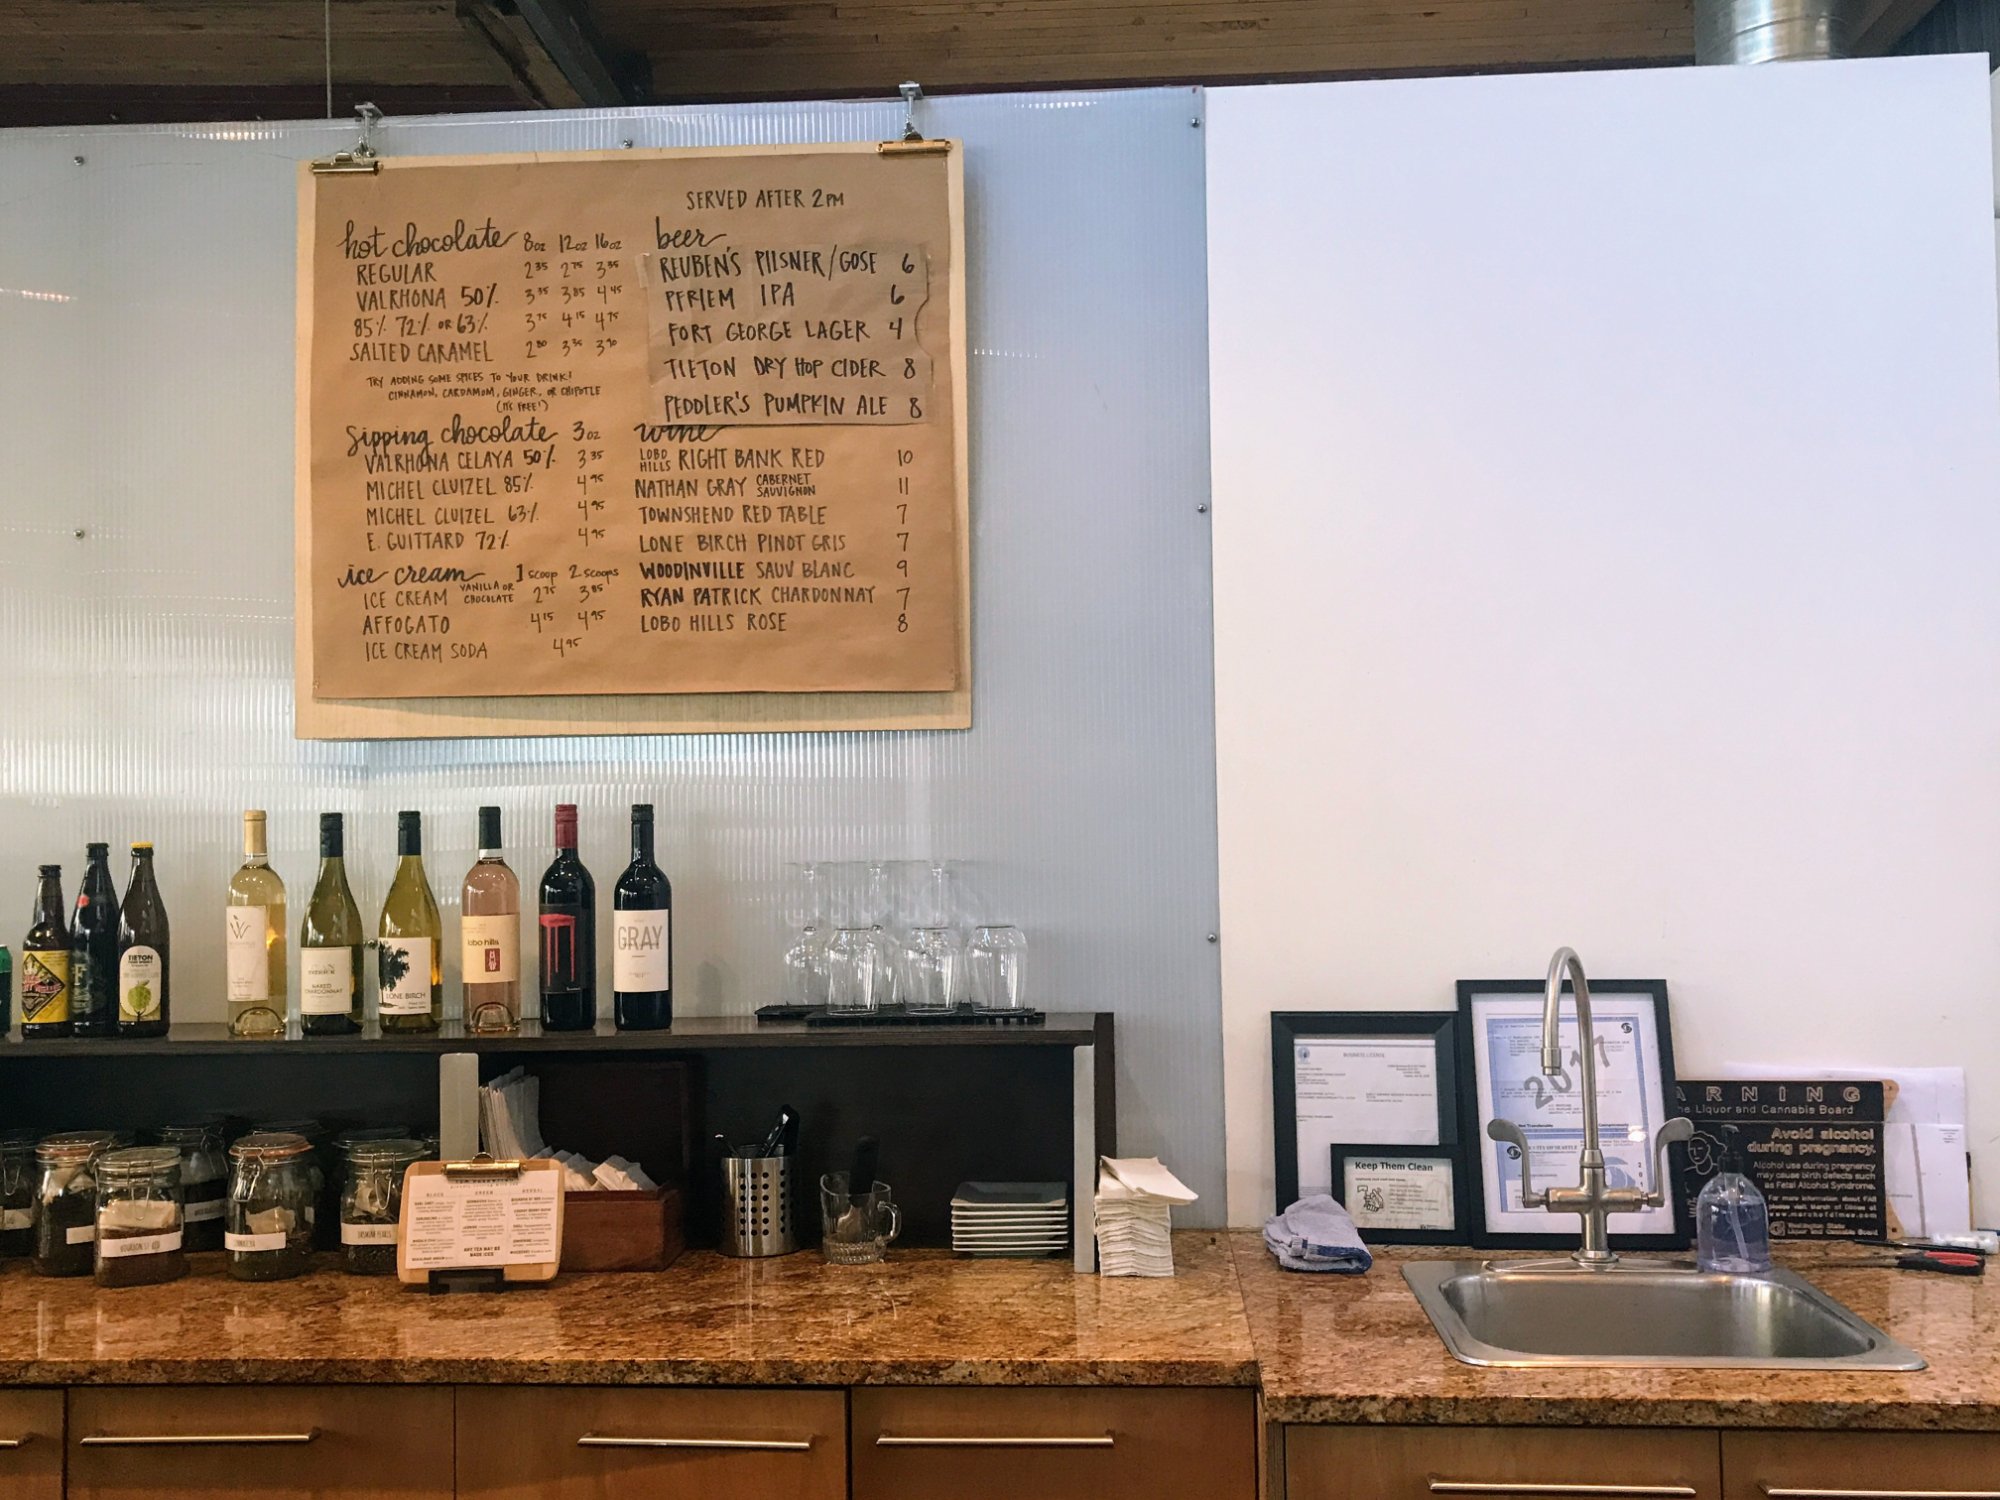 SERVED AFTER 2PM
hot chocolate 8oz 12oz 16oz
REGULAR 2.35 2.75 3.35
VALRHONA 50% 3.35 3.85 4.45
85% 72% OR 63% 3.75 4.15 4.75
SALTED CARAMEL 2.80 3.35 3.90
TRY ADDING SOME SPICES TO YOUR DRINK!
CINNAMON, CARDAMOM, GINGER, OR CHIPOTLE
(IT'S FREE!)
sipping chocolate 3oz
VALRHONA CELAYA 50% 3.35
MICHEL CLUIZEL 85% 4.95
MICHEL CLUIZEL 63% 4.95
E. GUITTARD 72% 4.95
ice cream 1 scoop 2 scoops
ICE CREAM VANILLA OR CHOCOLATE 2.75 3.85
AFFOGATO 4.15 4.95
ICE CREAM SODA 4.95
beer
REUBEN'S PILSNER/GOSE 6
PFRIEM IPA 6
FORT GEORGE LAGER 4
TIETON DRY HOP CIDER 8
PEDDLER'S PUMPKIN ALE 8
wine
LOBO HILLS RIGHT BANK RED 10
NATHAN GRAY CABERNET SAUVIGNON 11
TOWNSHEND RED TABLE 7
LONE BIRCH PINOT GRIS 7
WOODINVILLE SAUV BLANC 9
RYAN PATRICK CHARDONNAY 7
LOBO HILLS ROSE 8
TIETON
W
PATRICK
NAKED CHARDONNAY
LONE BIRCH
lobo hills
GRAY
BLACK GREEN HERBAL
ANY TEA MAY BE
MADE ICED
BOURBON ST RED
JASMINE PEARLS
BUSINESS LICENSE
2017
Keep Them Clean
ARNING
Liquor and Cannabis Board
Avoid alcohol
during pregnancy.
Alcohol use during pregnancy
may cause birth defects such
as Fetal Alcohol Syndrome.
For more information about FAS
please visit March of Dimes at
www.marchofdimes.com
Washington State
Liquor and Cannabis Board